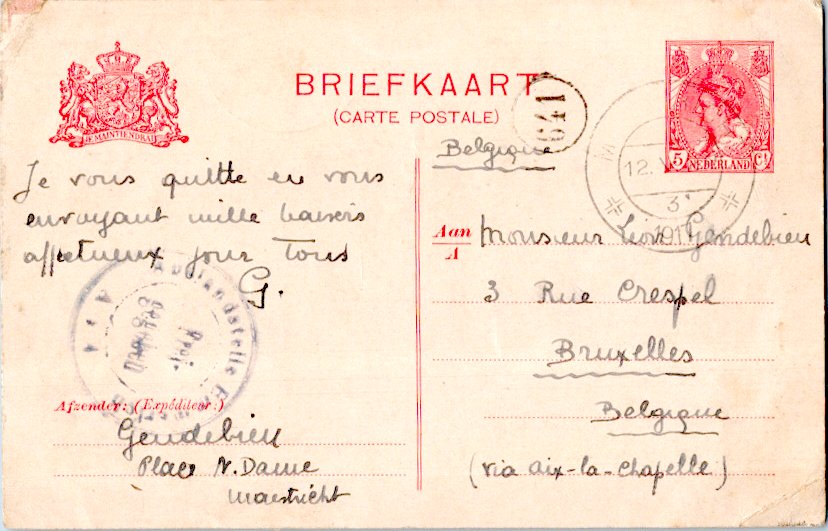 BRIEFKAART
(CARTE POSTALE)
JE MAINTIENDRAI
641
5 Ct
NEDERLAND
12.
3
1917
Je vous quitte en vous
envoyant mille baisers
affectueux pour Tous
G.
Auslandstelle
Afzender: (Expéditeur:)
Gendebien
Place N. Dame
Maestricht
Belgique
Aan
A
Monsieur Léon Gendebien
3 Rue Crespel
Bruxelles
Belgique
(via Aix-la-Chapelle)